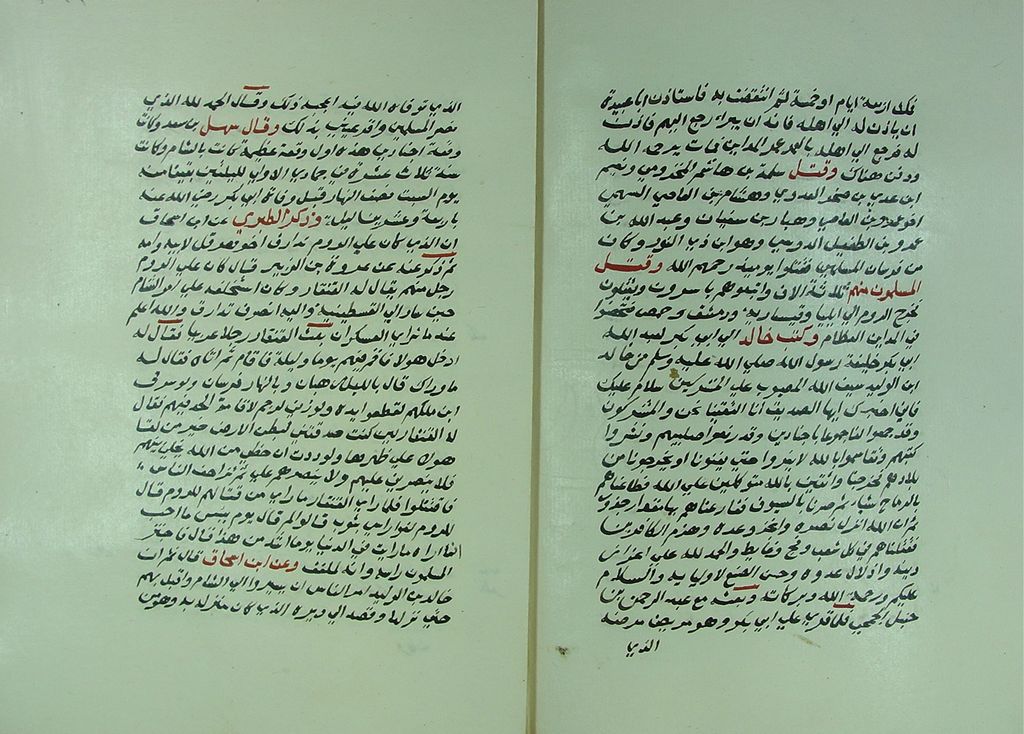 فمكث اربعة ايام او خمسة ثم انتقضت به فاستاذن ابا عبيدة
ان ياذن له الي اهله فانه ان يبراء رجع اليهم فاذن
له فرجع الي اهله بالمدابن فمات يرحمه الله
ودفن هناك وقتل سلمة بن هاشم المخزومي ونعيم
ابن عدي بن صخر العدوي وهشام بن العاصي السهمي
اخو عمرو بن العاصي وهبار بن سفيان وعبد الله بن
عمرو بن الطفيل الدوسي وهو ابن ذي النور وكان
من فرسان المسلمين فقتلوا يومئذ رحمهم الله وقتل
المسلمون منهم ثلاثة الاف واتبعوهم ياسرون ويقتلون
فخرج الروم الي ايليا وقيسارية ودمشق وحمص فتحصنوا
في المداين العظام وكتب خالد الي ابي بكر لعبد الله
ابي بكر خليفة رسول الله صلي الله عليه وسلم من خالد
ابن الوليد سيف الله المصبوب علي المشركين سلام عليك
فاني اخبرك ايها الصديق انا التقينا نحن والمشركون
وقد جمعوا لنا جموعا باجنادين وقد رفعوا صلبهم ونشروا
كتبهم وتقاسموا بالله لا يفروا حتي يفنونا او يخرجونا من
بلادهم فخرجنا واثقين بالله متوكلين علي الله فطاعناهم
بالرماح شيا ثم صرنا بالسيوف فقارعناهم بها مقدار جزور
ثم ان الله انزل نصره وانجز وعده وهزم الكافرين
فقتلناهم في كل شعب وفج وغايط والحمد لله علي اعزاز
دينه واذلال عدوه وحسن الصنع لاوليايه والسلام
عليكم ورحمة الله وبركاته وبعثه مع عبد الرحمن بن
حنبل الجمحي فلما قري علي ابي بكر وهو مريض مرضه
الذي
الذي توفاه الله فيه اعجبه ذلك وقال الحمد لله الذي
نصر المسلمين واقر عيني بذلك وقال سهل بن سعد وكانت
وقعة اجنادين هذه اول وقعة عظيمة كانت بالشام وكانت
سنة ثلاث عشرة في جمادي الاولي لليلتين بقيتا منه
يوم السبت نصف النهار قبل وفاة ابي بكر رضي الله عنه
باربعة وعشرين ليلة وذكر الطبري عن ابن اسحاق
ان الذي كان علي الروم تدارق اخو هرقل لابيه وامه
ثم ذكر عنه عن عروة بن الزبير قال كان علي الروم
رجل منهم يقال له القنقار وكان استخلفه علي امر الشام
حين سار الي القسطنطينية واليه انصرف تدارق والله اعلم
عنه ما تراي العسكران بعث القنقار رجلا عربيا فقال له
ادخل هولا فاقم فيهم يوما وليلة فاقام ثم اتاه فقال له
ما وراك قال بالليل رهبان وبالنهار فرسان ولو سرق
ابن ملكهم لقطعوا يده ولو زني لرجم لاقامة الحد فيهم فقال
له القنقار لين كنت صدقتني لبطن الارض خير من لقا
هولا علي ظهرها ولوددت ان حظي من الله يخلي بينهم
فلا ينصرني عليهم ولا ينصرهم علي ثم تزاحف الناس
فاقتتلوا فلما راي القنقار ما راي من قتالهم للروم قال
للروم لفوا راسي بثوب قالوا لم قال يوم بييس ما احب
اني اراه ما رايت في الدنيا يوما اشد من هذا قال فاحتز
المسلمون راسه وانه لملفف وعن ابن اسحاق قال ثم ان
خالد بن الوليد امر الناس ان يسيروا الي الشام واقبل بهم
حتي نزلها وقصد الي ديره الذي كان منزله به وهو من